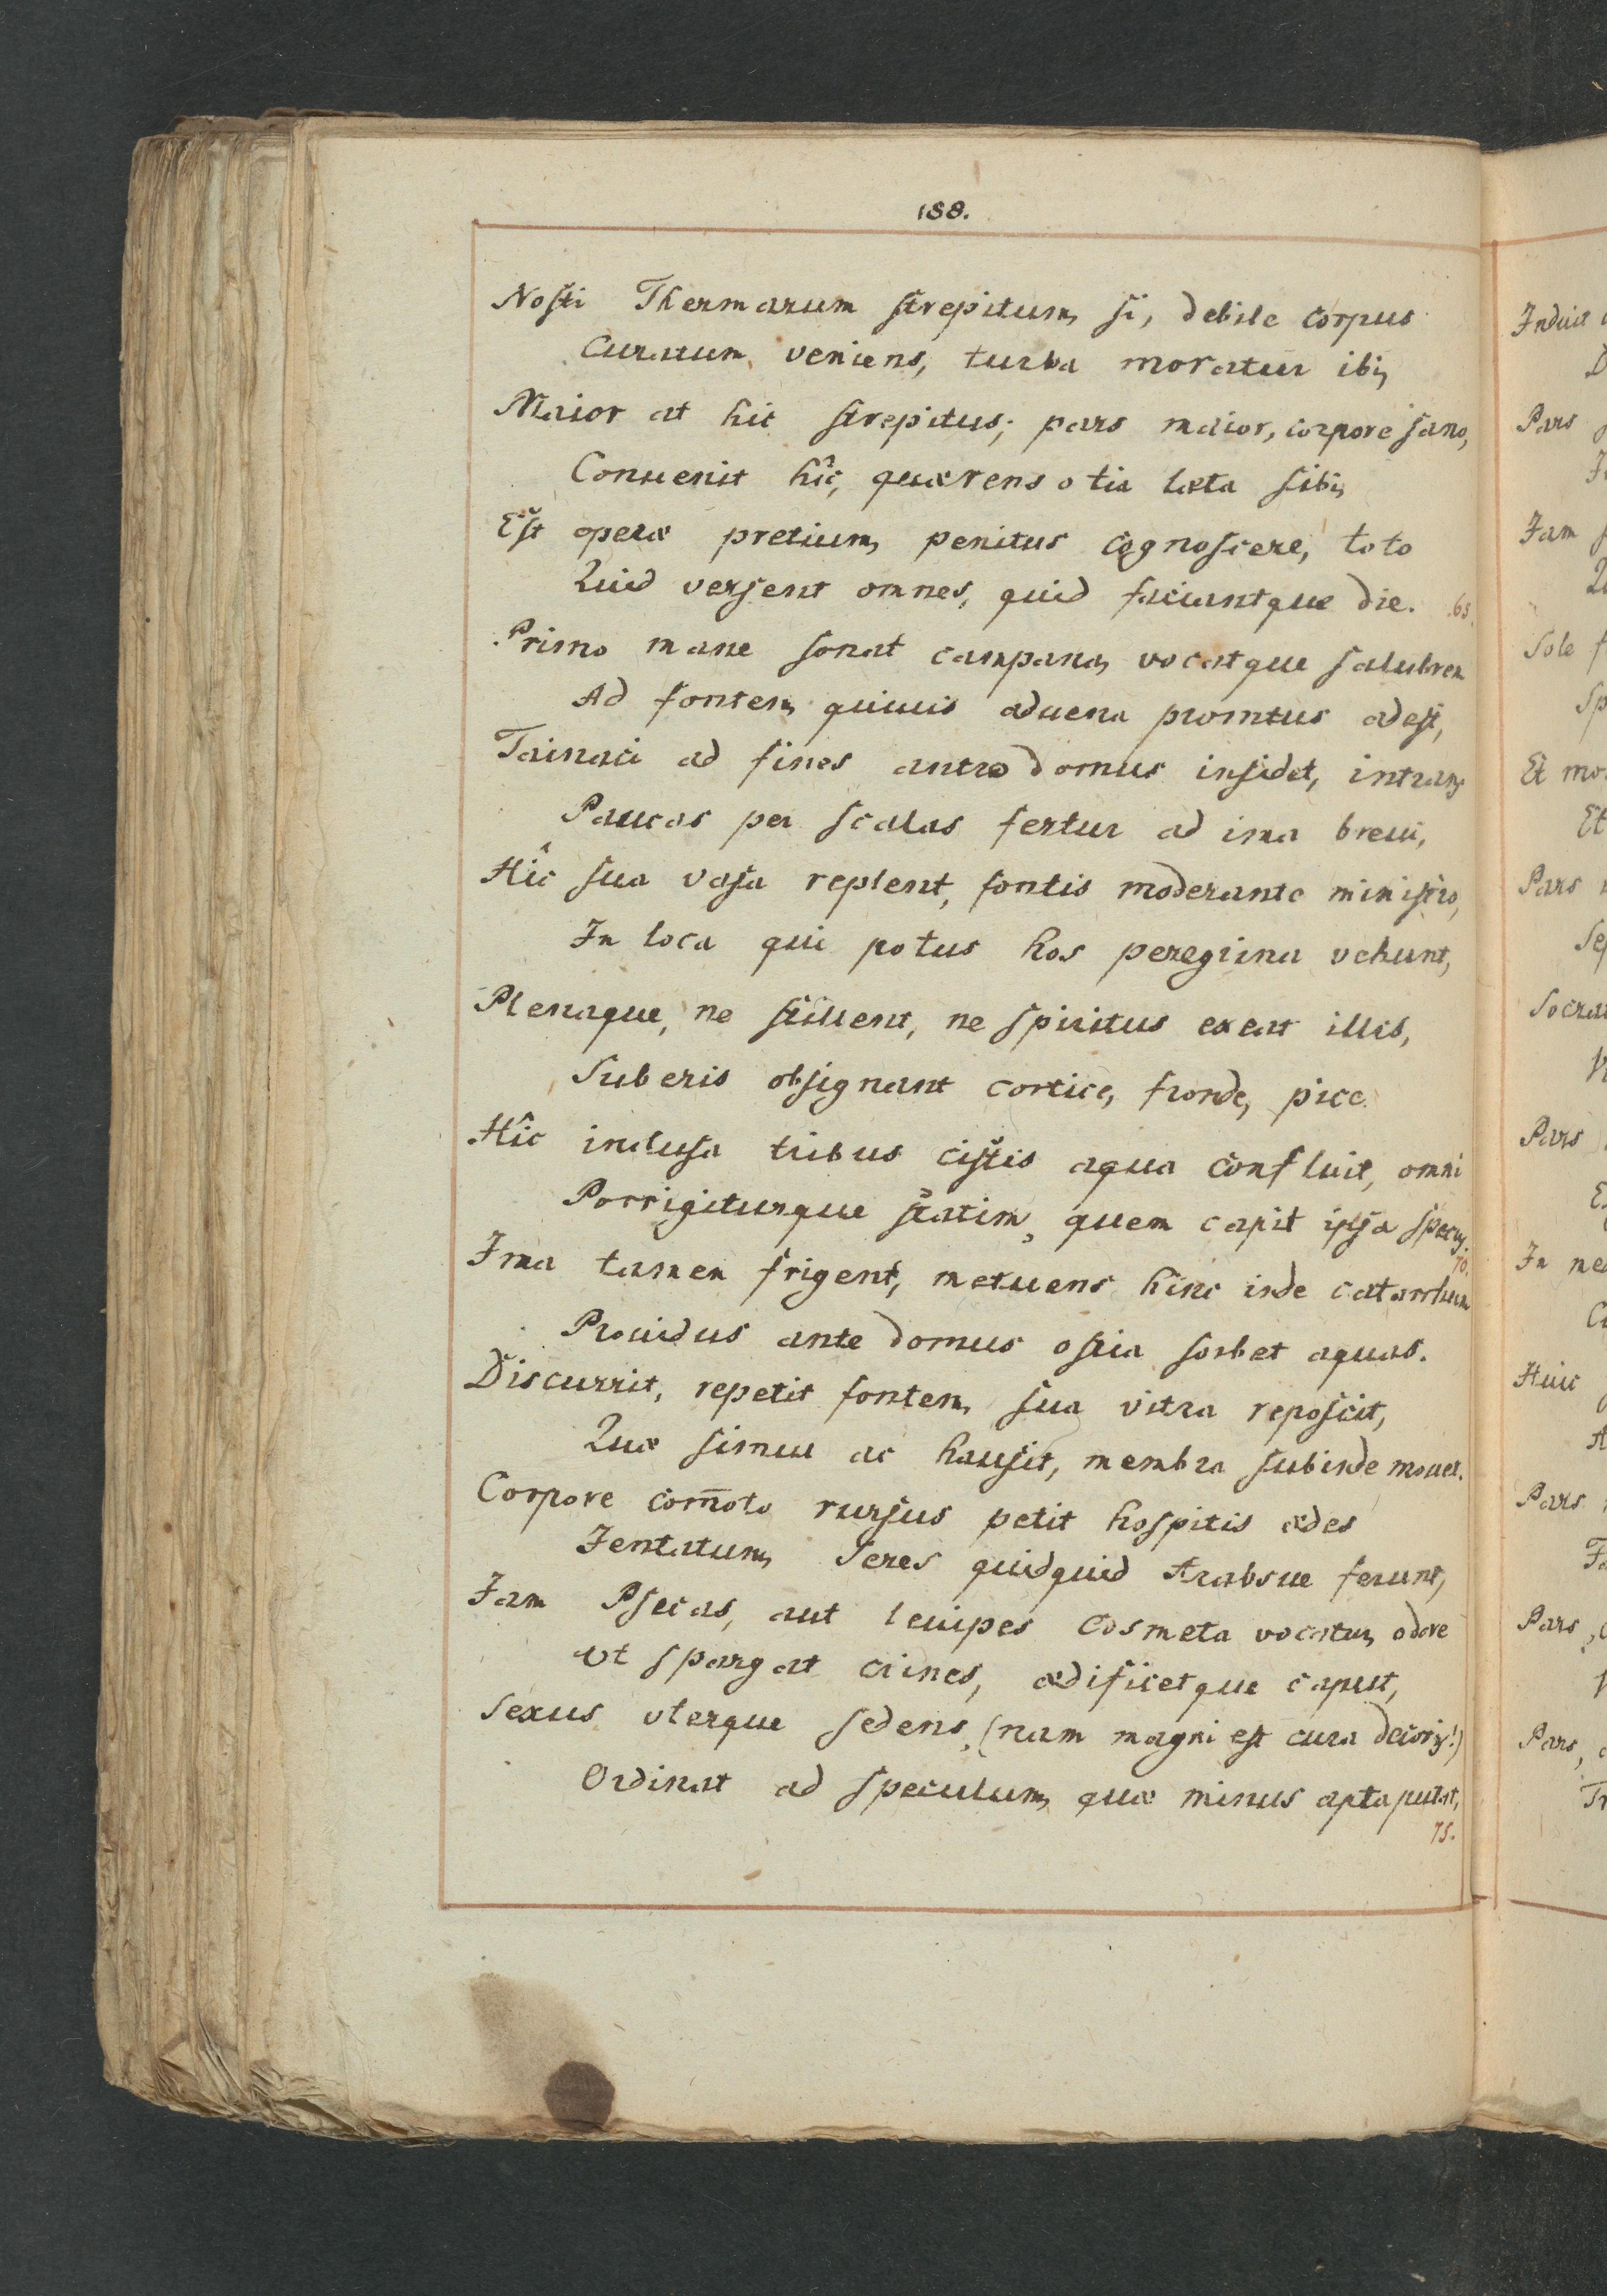 188.
Nosti Thermarum strepitum, si, debile corpus
Curatum veniens, turba moratur ibi,
Maior at hic strepitus; pars maior, corpore sano,
Conuenit hîc, quærens otia læta sibi,
Est operæ pretium, penitus cognoscere, toto
Quid versent omnes, quid faciantque die. 65.
Primo mane sonat campana, vocatque salubrem
Ad fontem, quiuis aduena promtus adest,
Tainaci ad fines antro domus insidet, intrans
Paucas per scalas fertur ad ima breui,
Hîc sua vasa replent, fontis moderante ministro,
In loca qui potus hos peregrina vehunt,
Plenaque, ne stillent, ne spiritus exeat illis,
Suberis obsignant cortice, fronde, pice.
Hîc inclusa tribus cistis aqua confluit, omni
Porrigiturque statim, quem capit ipsa specus.
70.
Ima tamen frigent, metuens hinc inde catarrhum
Prouidus ante domus ostia sorbet aquas.
Discurrit, repetit fontem, sua vitra reposcit,
Quæ simul ac hausit, membra subinde mouet.
Corpore com̅oto rursus petit hospitis ædes
Jentatum, Seres quidquid Arabsue ferunt,
Jam Psecas, aut leuipes Cosmeta vocatur, odore
Vt spargat crines, ædificetque caput,
Sexus vterque sedens, (nam magni est cura decoris!)
Ordinat ad speculum, quæ minus apta putat,
75.
Induit
Pars
Jam
Sole
Et
Et
Pars
Pars
In
Huic
Pars
Pars,
Pars,